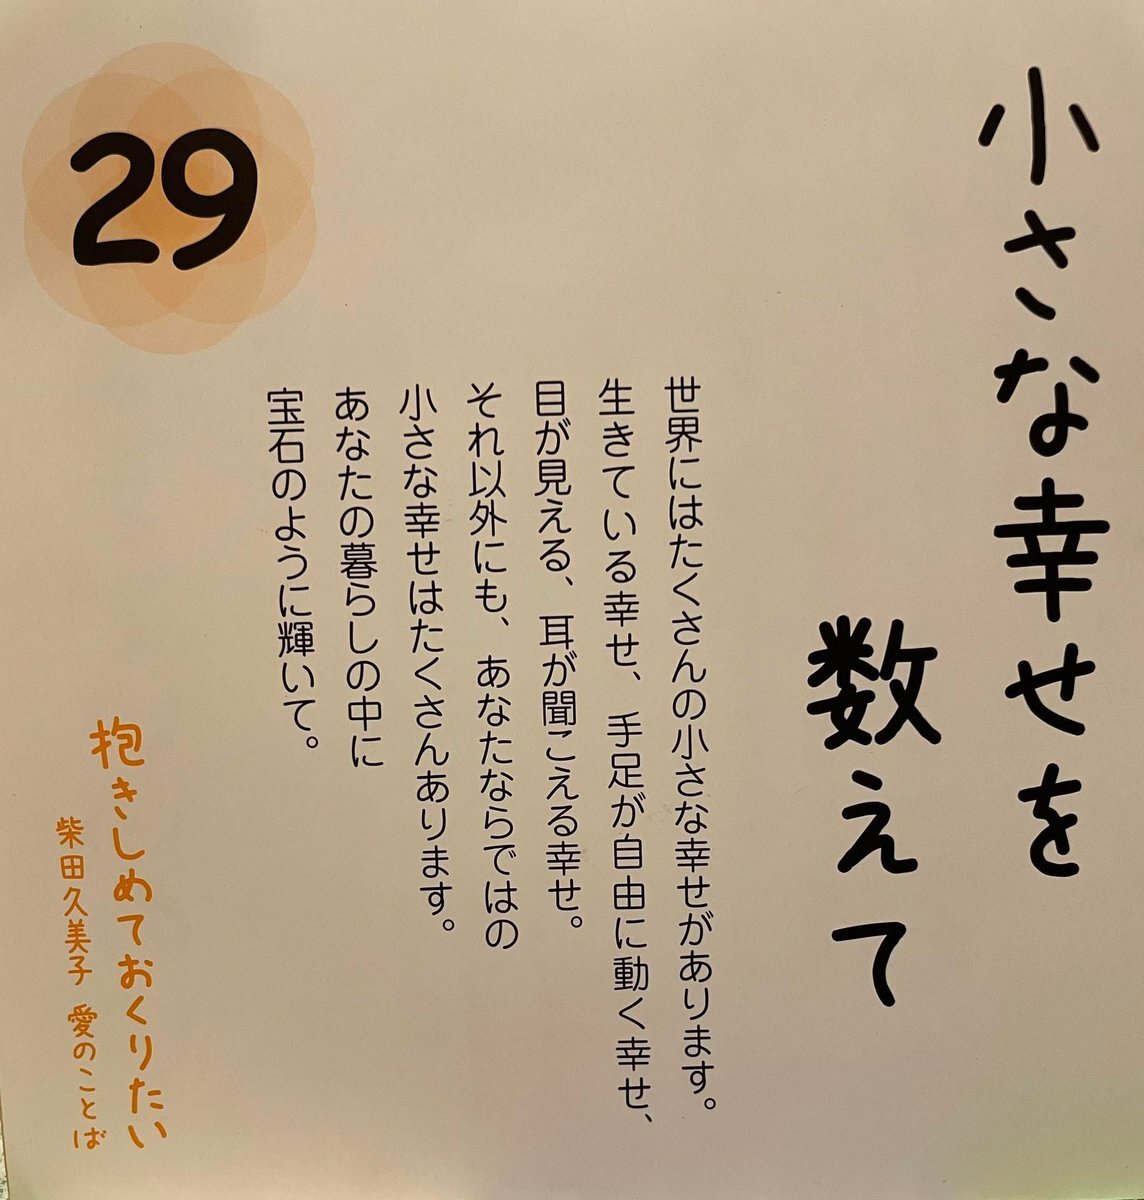 小さな幸せを
数えて
世界にはたくさんの小さな幸せがあります。
生きている幸せ、手足が自由に動く幸せ、
目が見える、耳が聞こえる幸せ。
それ以外にも、あなたならではの
小さな幸せはたくさんあります。
あなたの暮らしの中に
宝石のように輝いて。
29
抱きしめておくりたい
柴田久美子 愛のことば